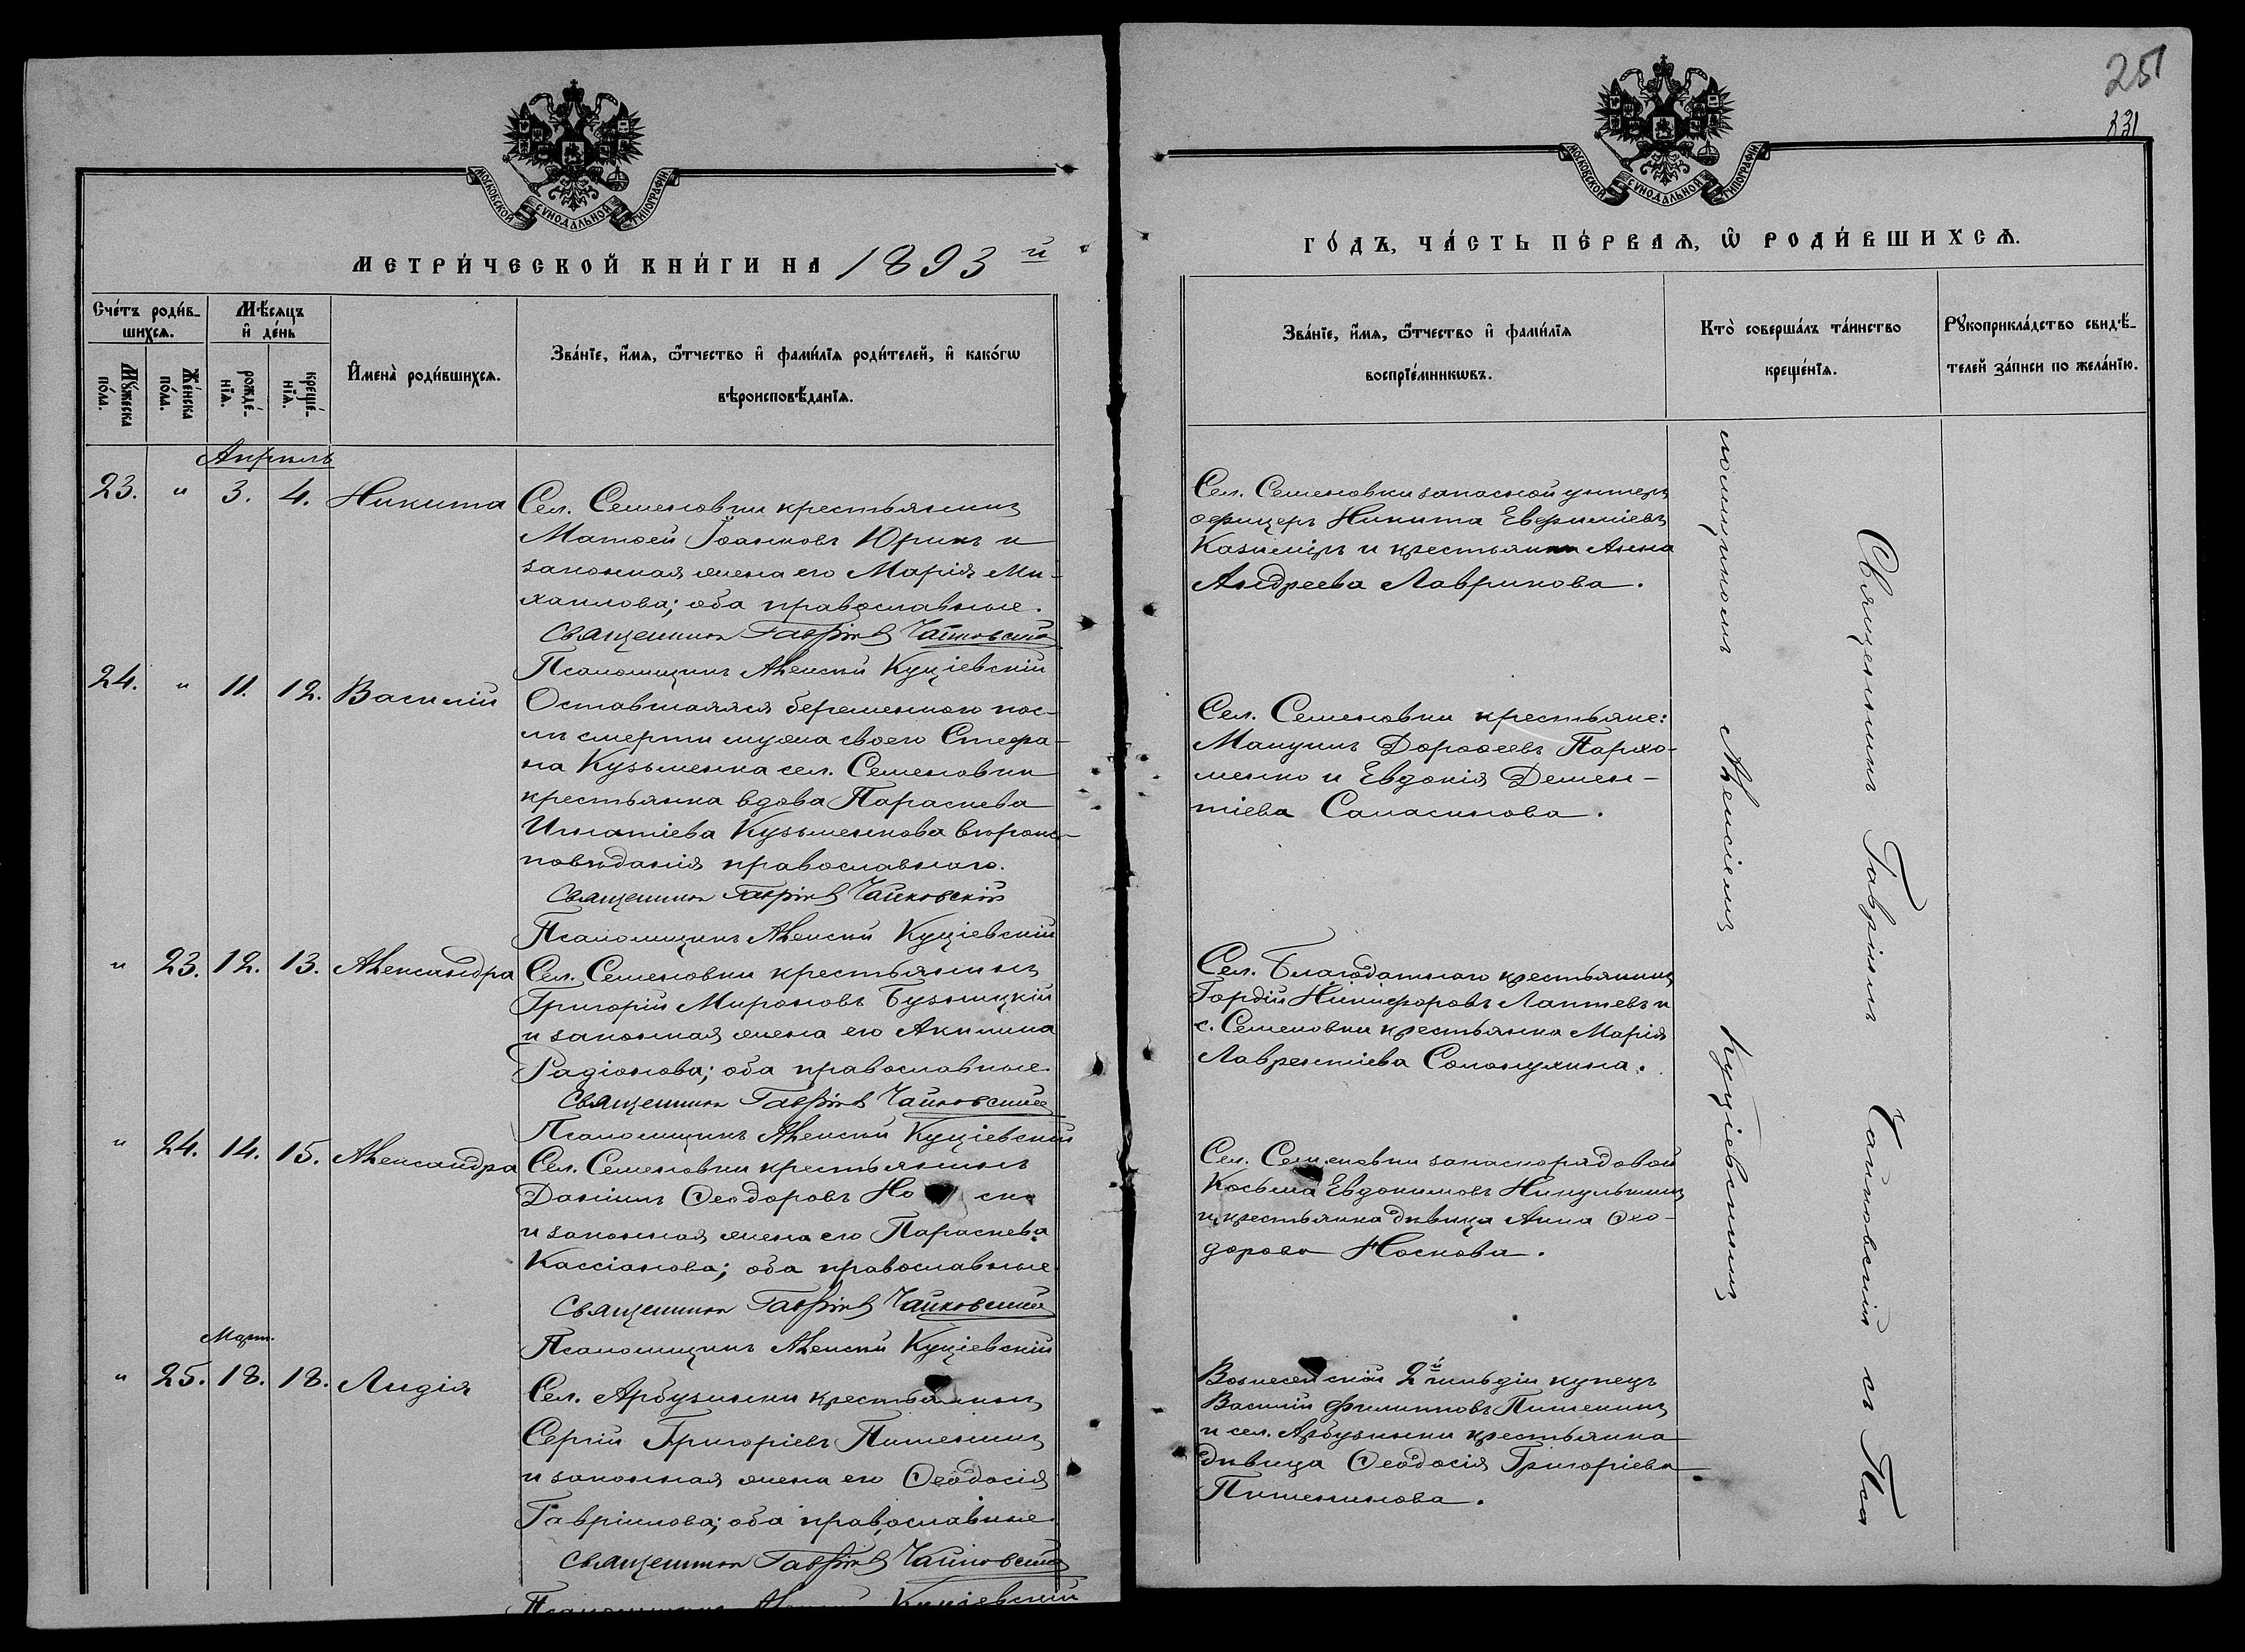 МОСКОВСКОЙ СѴНОДАЛЬНОЙ ТИПОГРАФІИ
МЕТРИ́ЧЕСКОЙ КНИ́ГИ НА 1893 й
Сче́тъ роди́в-
шихсѧ.
Мѣ́сѧцъ
и҆ де́нь
Мꙋ́жеска
по́ла.
Же́нска
по́ла.
рожде́-
нїѧ.
креще́-
нїѧ.
И҆мена̀ роди́вшихсѧ.
Зва́нїе, и҆́мѧ, ѻ҆́тчество и҆ фами́лїѧ роди́телей, и҆ како́гѡ
вѣроисповѣ́данїѧ.
Апрель
23. " 3. 4. Никита
Сел. Семеновки крестьянинъ
Матѳей Іоанновъ Юрикъ и
законная жена его Марія Ми-
хаилова; оба православные.
Священникъ Гавріилъ Чайковскій
Псаломщикъ Алексій Куціевскій
24. " 11. 12. Василій
Оставшаяся беременною пос-
лѣ смерти мужа своего Стефа-
на Кузьменка сел. Семеновки
крестьянка вдова Параскева
Игнатіева Кузьменкова вѣроис-
повѣданія православнаго.
Священникъ Гавріилъ Чайковскій
Псаломщикъ Алексій Куціевскій
" 23. 12. 13. Александра
Сел. Семеновки крестьянинъ
Григорій Мироновъ Бузницкій
и законная жена его Акилина
Радіонова; оба православные.
Священникъ Гавріилъ Чайковскій
Псаломщикъ Алексій Куціевскій
" 24. 14. 15. Александра
Сел. Семеновки крестьянинъ
Даніилъ Ѳеодоровъ
и законная жена его Параскева
Кассіанова; оба православные.
Священникъ Гавріилъ Чайковскій
Псаломщикъ Алексій Куціевскій
Март.
" 25. 18. 18. Лидія
Сел. Арбузинки крестьянинъ
Сергій Григоріевъ Пишенинъ
и законная жена его Ѳеодосія
Гавріилова; оба православные.
Священникъ Гавріилъ Чайковскій
Псаломщикъ Алексій Куціевскій
251
331
МОСКОВСКОЙ СѴНОДАЛЬНОЙ ТИПОГРАФІИ
ГО́ДЪ, ЧА́СТЬ ПЕ́РВАѦ, Ѽ РОДИ́ВШИХСѦ.
Зва́нїе, и҆́мѧ, ѻ҆́тчество и҆ фами́лїѧ
воспрїе́мникѡвъ.
Кто̀ соверша́лъ та́инство
креще́нїѧ.
Рꙋкоприкла́дство свидѣ́-
телей за́писи по жела́нїю.
Сел. Семеновки запасной унтеръ
офицеръ Никита Евфиміевъ
Казиміръ и крестьянка Анна
Андреева Лаврикова.
Сел. Семеновки крестьяне:
Мануилъ Дороѳеевъ Пархо-
менко и Евдокія Демен-
тіева Самасинова.
Сел. Благодатнаго крестьянинъ
Гордій Никифоровъ Лаптевъ и
с. Семеновки крестьянка Марія
Лаврентіева Соломухина.
Сел. Семеновки запаснорядовой
Косьма Евдокимовъ Никульшинъ
и крестьянка дѣвица Анна Ѳео-
дорова Носкова.
Вознесенскій 2й гильдіи купецъ
Василій Филипповъ Пишенинъ
и сел. Арбузинки крестьянка
дѣвица Ѳеодосія Григоріева
Пишенинова.
Священникъ Гавріилъ Чайковскій съ Пса
ломщикомъ Алексіемъ Куціевскимъ